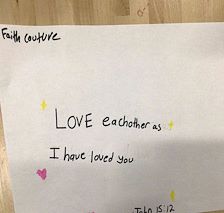 Faith Couture
LOVE eachother as
I have loved you
John 15:12